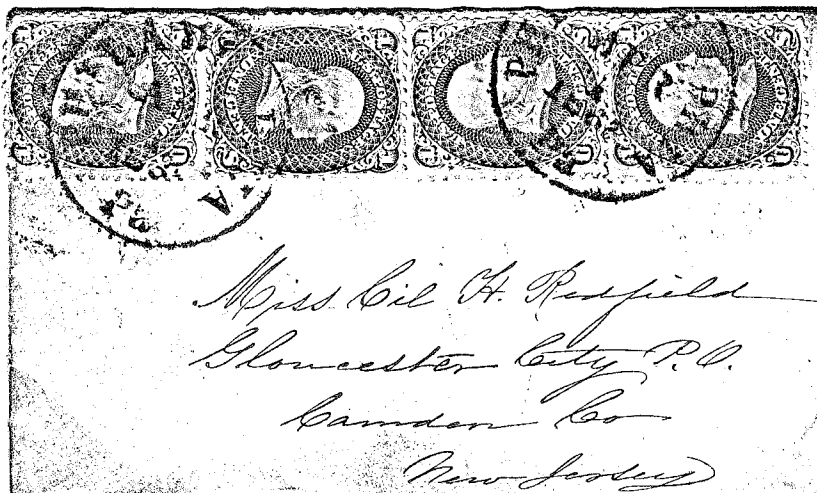 Miss Cil H. Redfield
Gloucester City P. O.
Camden Co
New Jersey